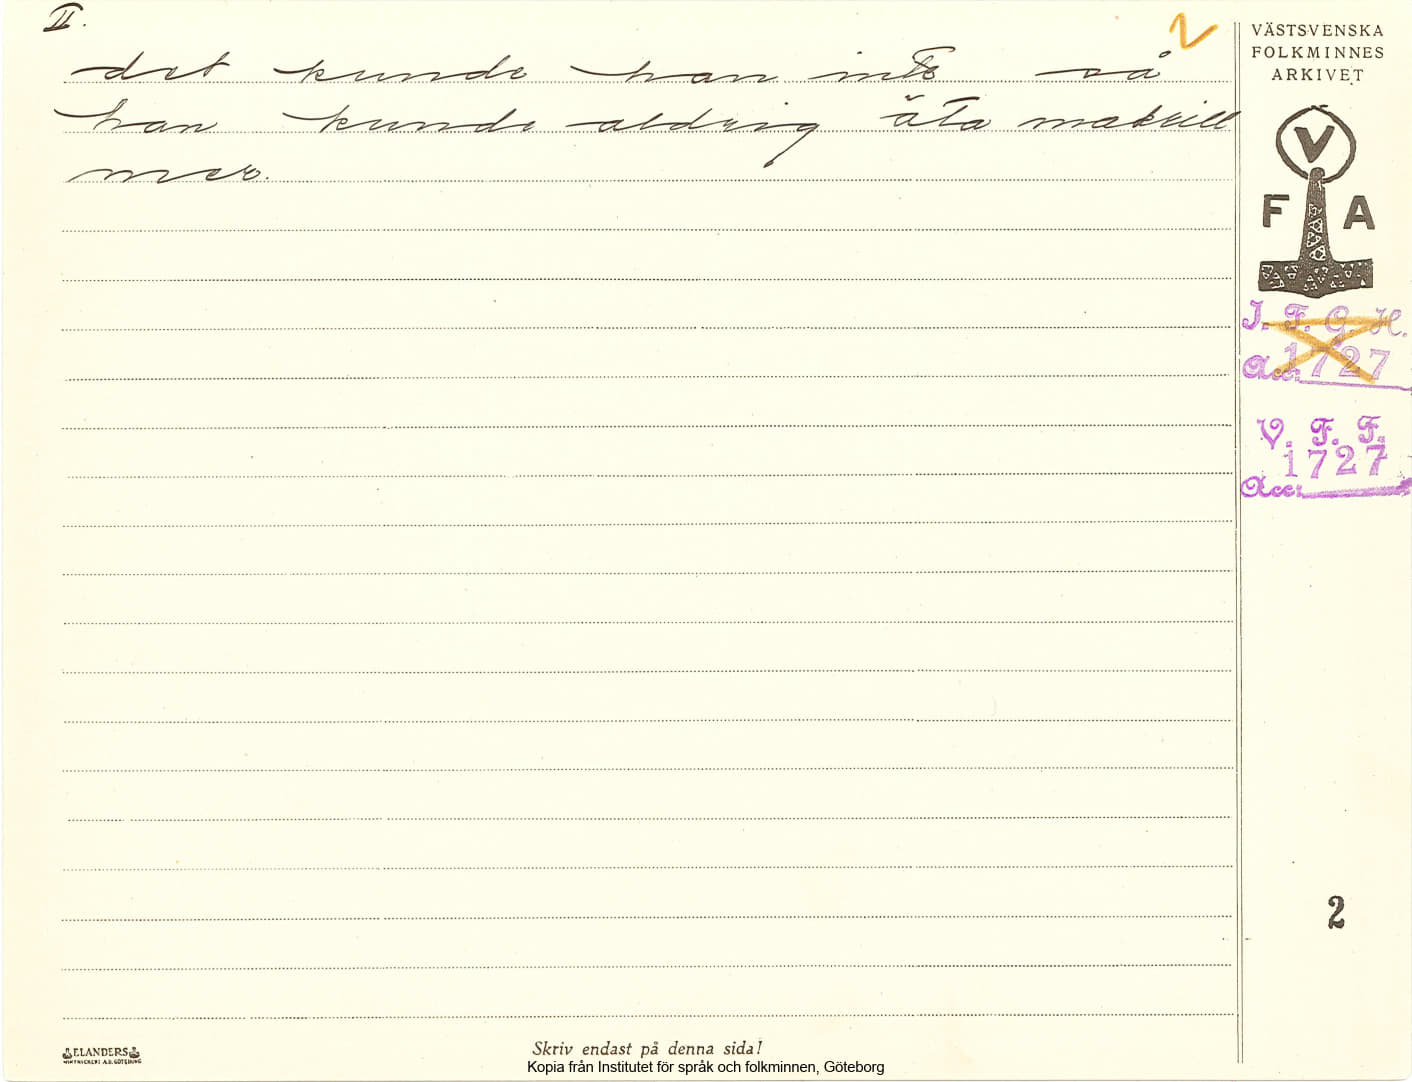 II.
2
det kunde han inte så
han kunde aldrig äta makrill
mer.
VÄSTSVENSKA
FOLKMINNES
ARKIVET
V
F A
I. F. G. H.
Acc: 1727
V. F. F.
1727
Acc:
2
ELANDERS
Skriv endast på denna sida!
Kopia från Institutet för språk och folkminnen, Göteborg